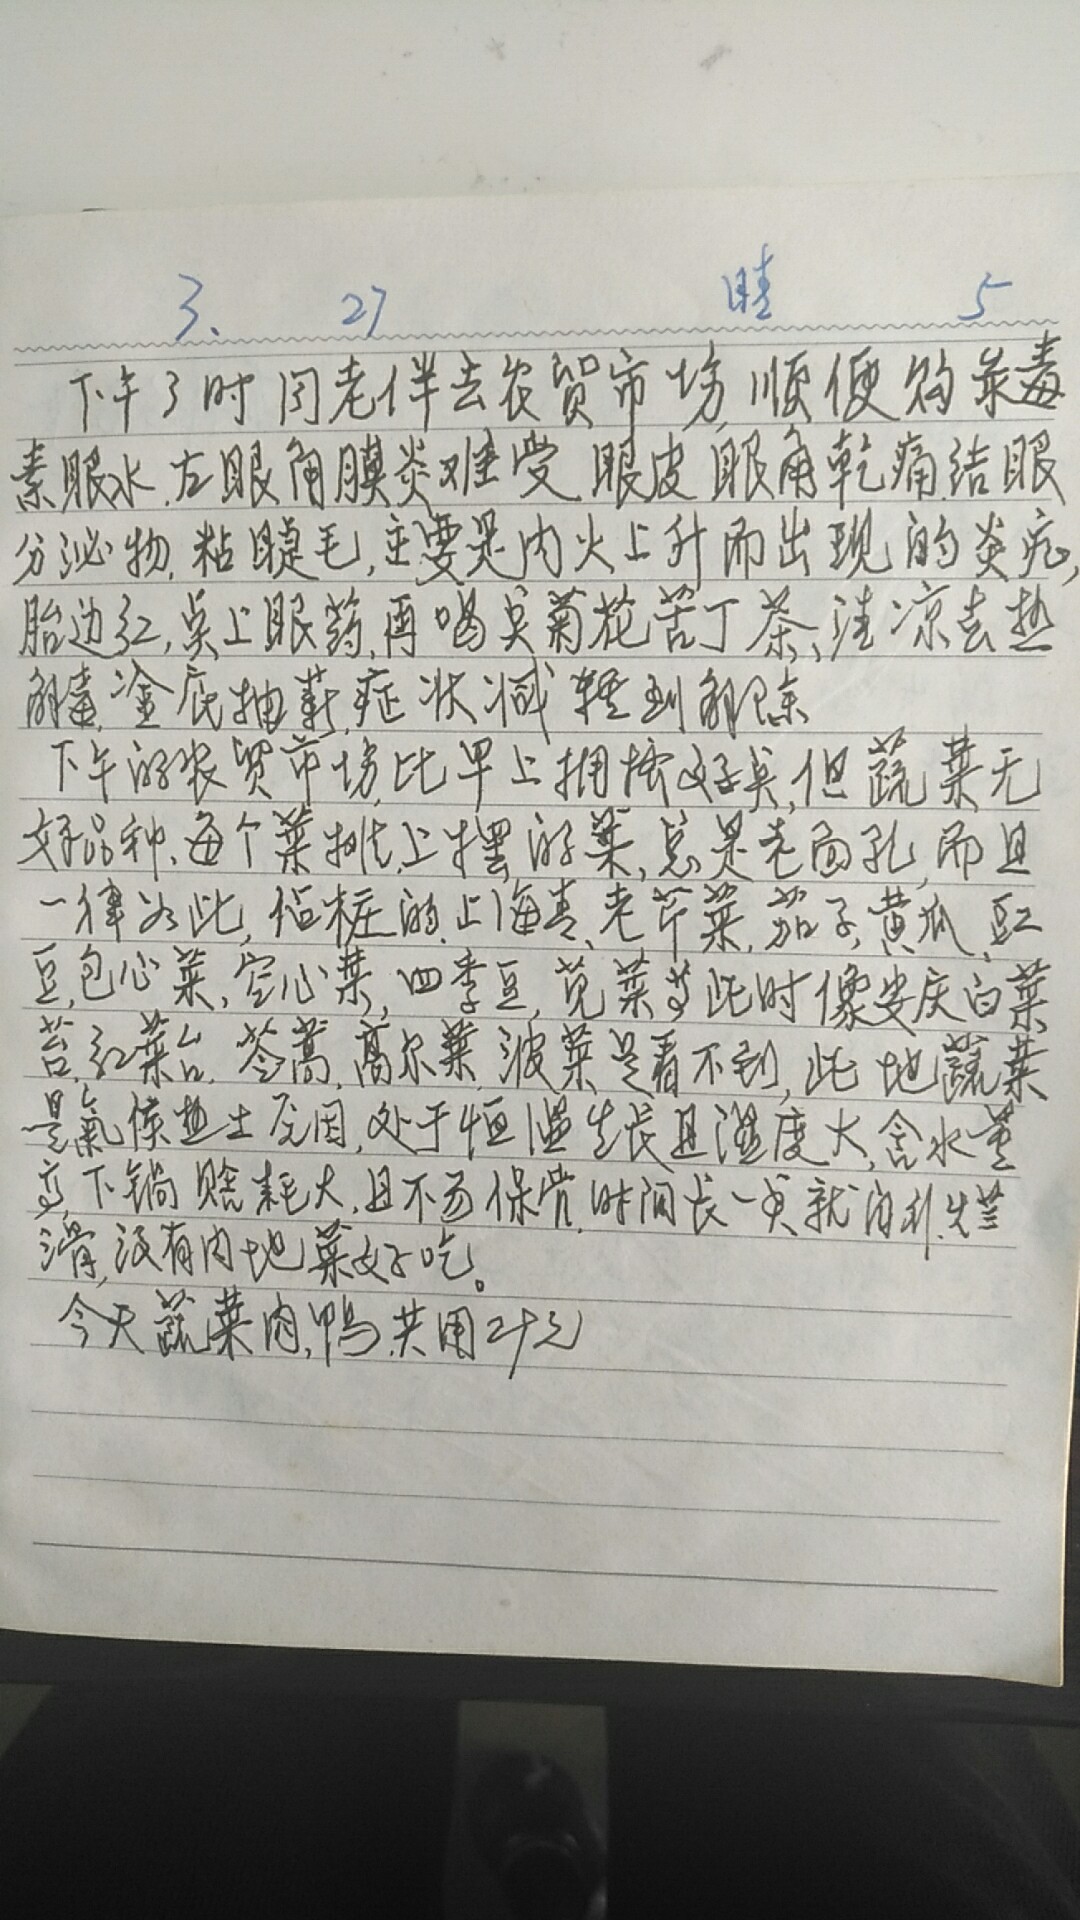 3. 27 晴 5
下午3时同老伴去农贸市场,顺便购 毒
素眼水.左眼角膜炎难受.眼皮眼角乾痛.结眼
分泌物.粘睫毛,主要是内火上升而出现的炎症,
胎边红,点上眼药,再喝点菊花苦丁茶、清凉去热
解毒.釜底抽薪,症状减轻到解除
下午的农贸市场,比早上拥挤好点,但蔬菜无
好品种、每个菜摊上摆的菜,总是老面孔,而且
一律如此, 的上海青、老芹菜,茄子,黄瓜、豇
豆,包心菜,空心菜,四季豆,苋菜等此时像安庆白菜
苔.红菜台.茼蒿,高尔菜,波菜是看不到,此地蔬菜
是氣候热土 因,处于恒温生长且湿度大,含水量
高,下锅 耗大,且不易保管,时间长一点就 烂
滑,没有内地菜好吃。
今天蔬菜肉,鸭,共用 元